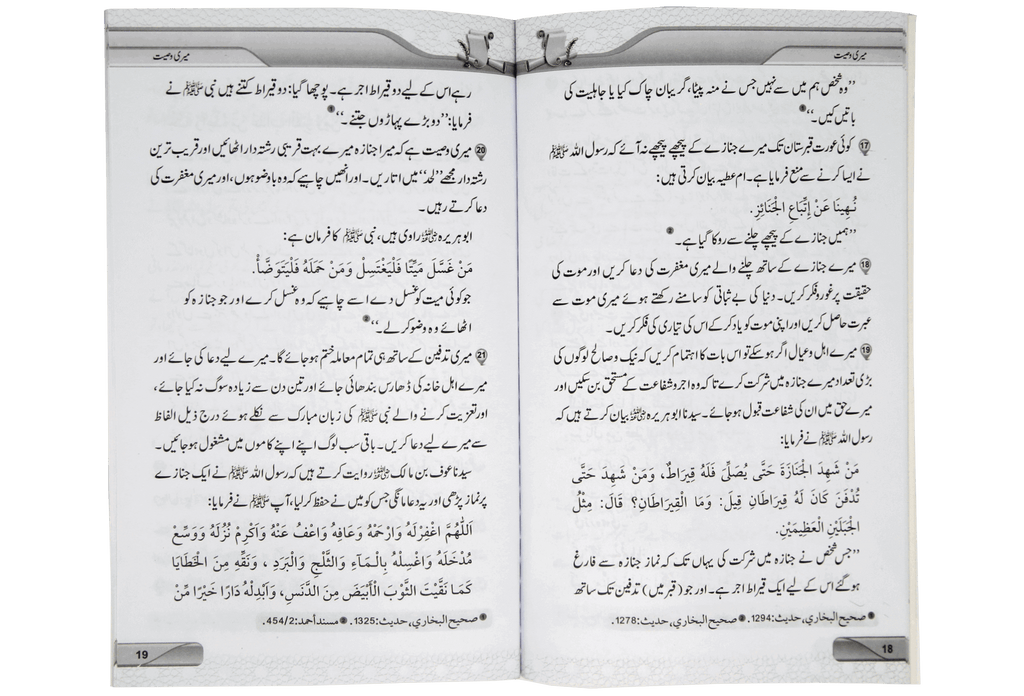 میری وصیت
’’وہ شخص ہم میں سے نہیں جس نے منہ پیٹا، گریبان چاک کیا یا جاہلیت کی
باتیں کیں۔‘‘
17 کوئی عورت قبرستان تک میرے جنازے کے پیچھے پیچھے نہ آئے کہ رسول اللہ ﷺ
نے ایسا کرنے سے منع فرمایا ہے۔ ام عطیہ بیان کرتی ہیں:
نُهِينَا عَنْ إِتِّبَاعِ الْجَنَائِزِ.
’’ہمیں جنازے کے پیچھے چلنے سے روکا گیا ہے۔
18 میرے جنازے کے ساتھ چلنے والے میری مغفرت کی دعا کریں اور موت کی
حقیقت پر غور و فکر کریں۔ دنیا کی بے ثباتی کو سامنے رکھتے ہوئے میری موت سے
عبرت حاصل کریں اور اپنی موت کو یاد کر کے اس کی تیاری کی فکر کریں۔
19 میرے اہل و عیال اگر ہو سکے تو اس بات کا اہتمام کریں کہ نیک و صالح لوگوں کی
بڑی تعداد میرے جنازہ میں شرکت کرے تا کہ وہ اجر و شفاعت کے مستحق بن سکیں اور
میرے حق میں ان کی شفاعت قبول ہو جائے۔ سیدنا ابو ہریرہ رضی اللہ عنہ بیان کرتے ہیں کہ
رسول اللہ ﷺ نے فرمایا:
مَنْ شَهِدَ الْجَنَازَةَ حَتَّى يُصَلَّى فَلَهُ قِيرَاطٌ، وَمَنْ شَهِدَ حَتَّى
تُدْفَنَ كَانَ لَهُ قِيرَاطَانِ قِيلَ: وَمَا الْقِيرَاطَانِ؟ قَالَ: مِثْلُ
الْجَبَلَيْنِ الْعَظِيمَيْنِ.
’’جس شخص نے جنازہ میں شرکت کی یہاں تک کہ نماز جنازہ سے فارغ
ہو گئے اس کے لیے ایک قیراط اجر ہے۔ اور جو (قبر میں) تدفین تک ساتھ
صحيح البخاري، حديث:1294. صحيح البخاري، حديث:1278.
18
میری وصیت
رہے اس کے لیے دو قیراط اجر ہے۔ پوچھا گیا: دو قیراط کتنے ہیں نبی ﷺ نے
فرمایا: ’’دو بڑے پہاڑوں جتنے۔‘‘
20 میری وصیت ہے کہ میرا جنازہ میرے بہت قریبی رشتہ دار اٹھائیں اور قریب ترین
رشتہ دار مجھے ’’لحد‘‘ میں اتاریں۔ اور انھیں چاہیے کہ وہ باوضو ہوں، اور میری مغفرت کی
دعا کرتے رہیں۔
ابو ہریرہ رضی اللہ عنہ راوی ہیں، نبی ﷺ کا فرمان ہے:
مَنْ غَسَّلَ مَيِّتًا فَلْيَغْتَسِلْ وَمَنْ حَمَلَهُ فَلْيَتَوَضَّأْ.
جو کوئی میت کو غسل دے اسے چاہیے کہ وہ غسل کرے اور جو جنازہ کو
اٹھائے وہ وضو کر لے۔‘‘
21 میری تدفین کے ساتھ ہی تمام معاملہ ختم ہو جائے گا۔ میرے لیے دعا کی جائے اور
میرے اہل خانہ کی ڈھارس بندھائی جائے اور تین دن سے زیادہ سوگ نہ کیا جائے،
اور تعزیت کرنے والے نبی ﷺ کی زبان مبارک سے نکلے ہوئے درج ذیل الفاظ
سے میرے لیے دعا کریں۔ باقی سب لوگ اپنے اپنے کاموں میں مشغول ہو جائیں۔
سیدنا عوف بن مالک رضی اللہ عنہ روایت کرتے ہیں کہ رسول اللہ ﷺ نے ایک جنازے
پر نماز پڑھی اور یہ دعا مانگی جس کو میں نے حفظ کر لیا، آپ ﷺ نے فرمایا:
اَللّٰهُمَّ اغْفِرْلَهُ وَارْحَمْهُ وَعَافِهِ وَاعْفُ عَنْهُ وَاَكْرِمْ نُزُلَهُ وَوَسِّعْ
مُدْخَلَهُ وَاغْسِلْهُ بِالْمَاءِ وَالثَّلْجِ وَالْبَرَدِ، وَنَقِّهِ مِنَ الْخَطَايَا
كَمَا نَقَّيْتَ الثَّوْبَ الْأَبْيَضَ مِنَ الدَّنَسِ، وَاَبْدِلْهُ دَارًا خَيْرًا مِّنْ
صحيح البخاري، حديث:1325. مسند أحمد:454/2.
19